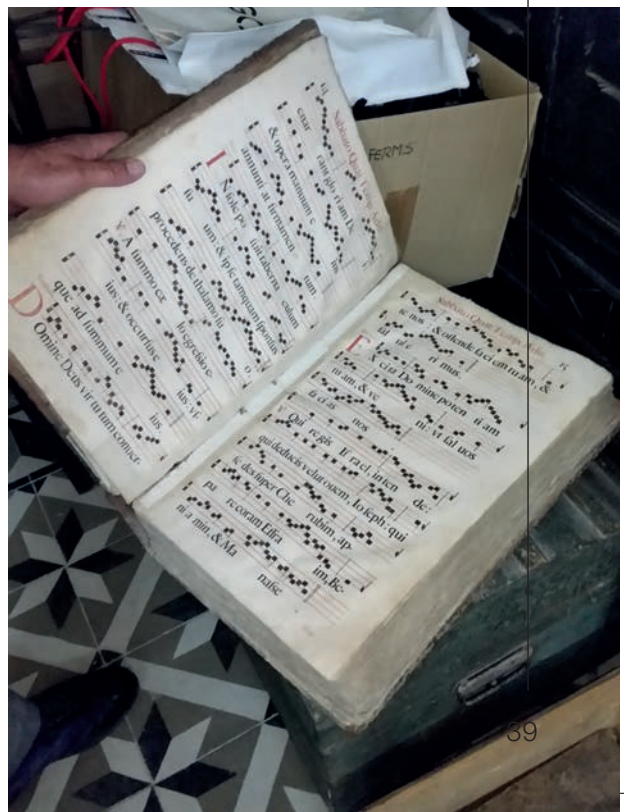 FERMS
Sabbato Quat. Temp. Adu.
enar rant glo ri am De
& opera manuum e
annunti at firmamen tum
IN sole po suit taberna culum
su um: & ipse tamquam sponsus
procedens de thalamo su o.
V. A summo cæ lo egressio e-
ius: & occursus e ius vs-
que ad summum e ius
DOmine Deus vir tu tum conuer-
Sabbato Quat. Temp. Adu.
te nos: & ostende fa ci em tu am, &
sal ui e ri mus.
Ex ci ta Do mine poten ti am
tu am, & ve ni: vt sal uos
fa ci as nos
Qui re gis Is ra el, inten de:
qui deducis velut ouem, Ioseph: qui
se des super Che rubim, ap-
pa re coram Effra im, Be-
ni a min, & Ma nasse
39